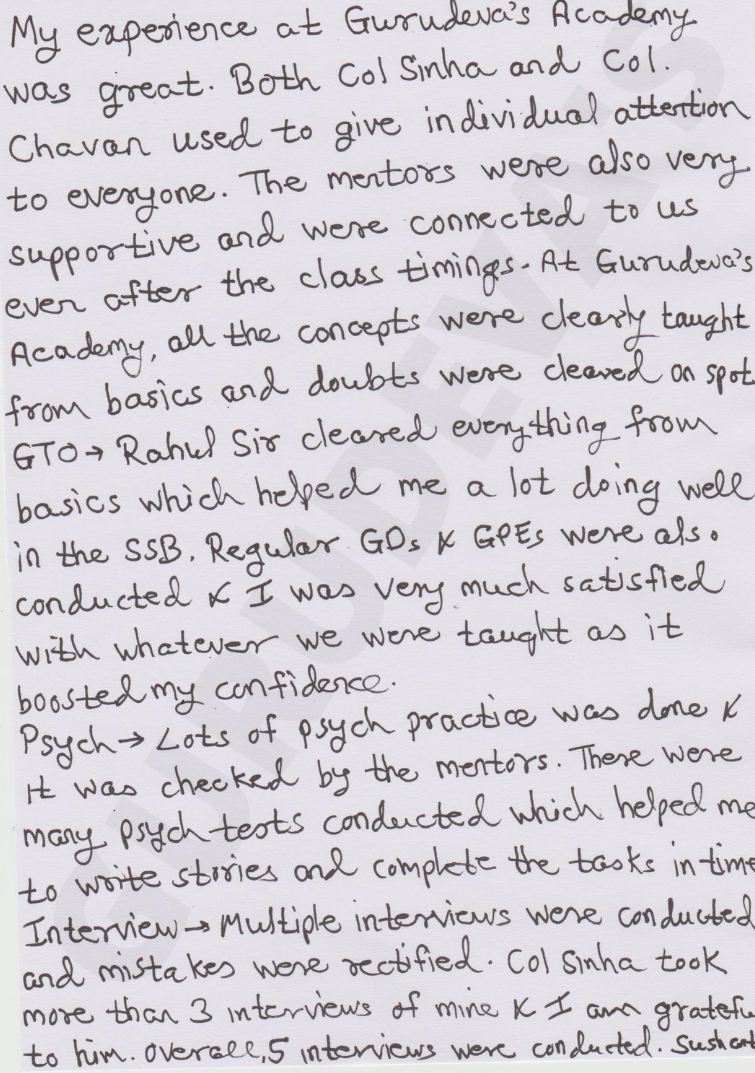 My experience at Gurudeva's Academy
was great. Both Col Sinha and Col.
Chavan used to give individual attention
to everyone. The mentors were also very
supportive and were connected to us
even after the class timings. At Gurudeva's
Academy, all the concepts were clearly taught
from basics and doubts were cleared on spot.
GTO → Rahul Sir cleared everything from
basics which helped me a lot doing well
in the SSB. Regular GDs & GPEs were also
conducted & I was very much satisfied
with whatever we were taught as it
boosted my confidence.
Psych → Lots of psych practice was done &
it was checked by the mentors. There were
many psych tests conducted which helped me
to write stories and complete the tasks in time
Interview → Multiple interviews were conducted
and mistakes were rectified. Col Sinha took
more than 3 interviews of mine & I am gratefu
to him. Overall, 5 interviews were conducted. Sushant
GURUDEVA'S